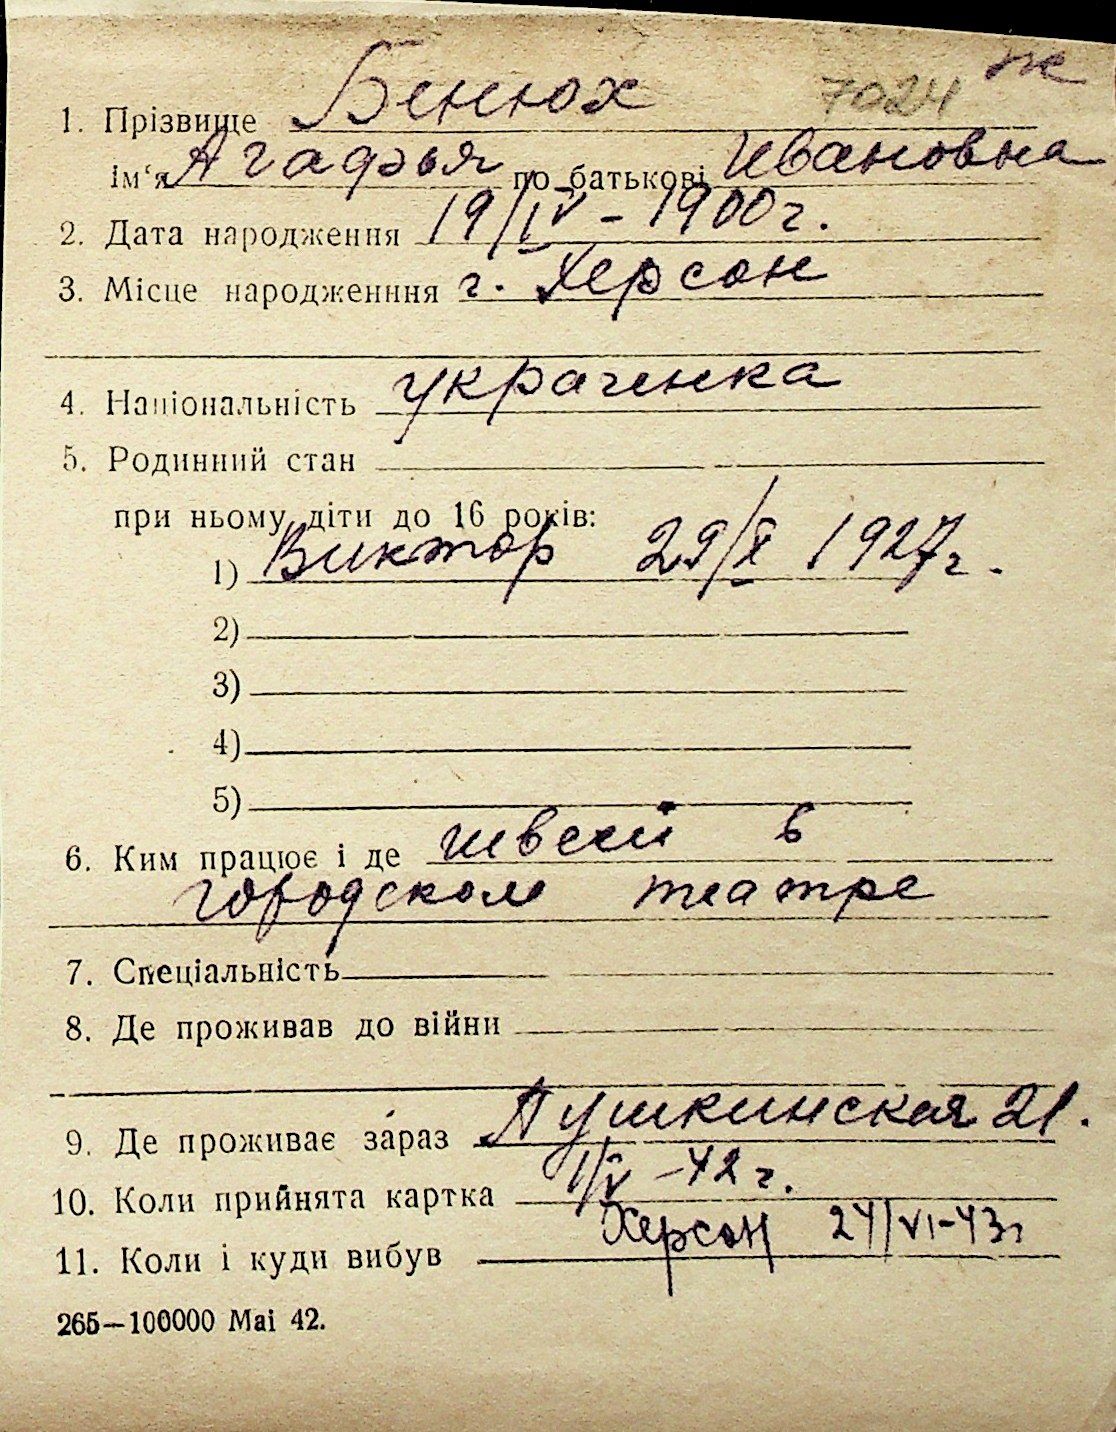 1. Прізвище Бенюх 7024
ім'я Агафья по батькові Ивановна
2. Дата народження 19/IV – 1900 г.
3. Місце народженння г. Херсон
4. Національність украенка
5. Родинний стан
при ньому діти до 16 років:
1) Виктор 29/X 1927 г.
2)
3)
4)
5)
6. Ким працює і де швеей в
городском театре
7. Спеціальність
8. Де проживав до війни
9. Де проживає зараз Пушкинская 21.
10. Коли прийнята картка 1/V – 42 г.
11. Коли і куди вибув Херсон 24/VI–43 г
265—100000 Mai 42.